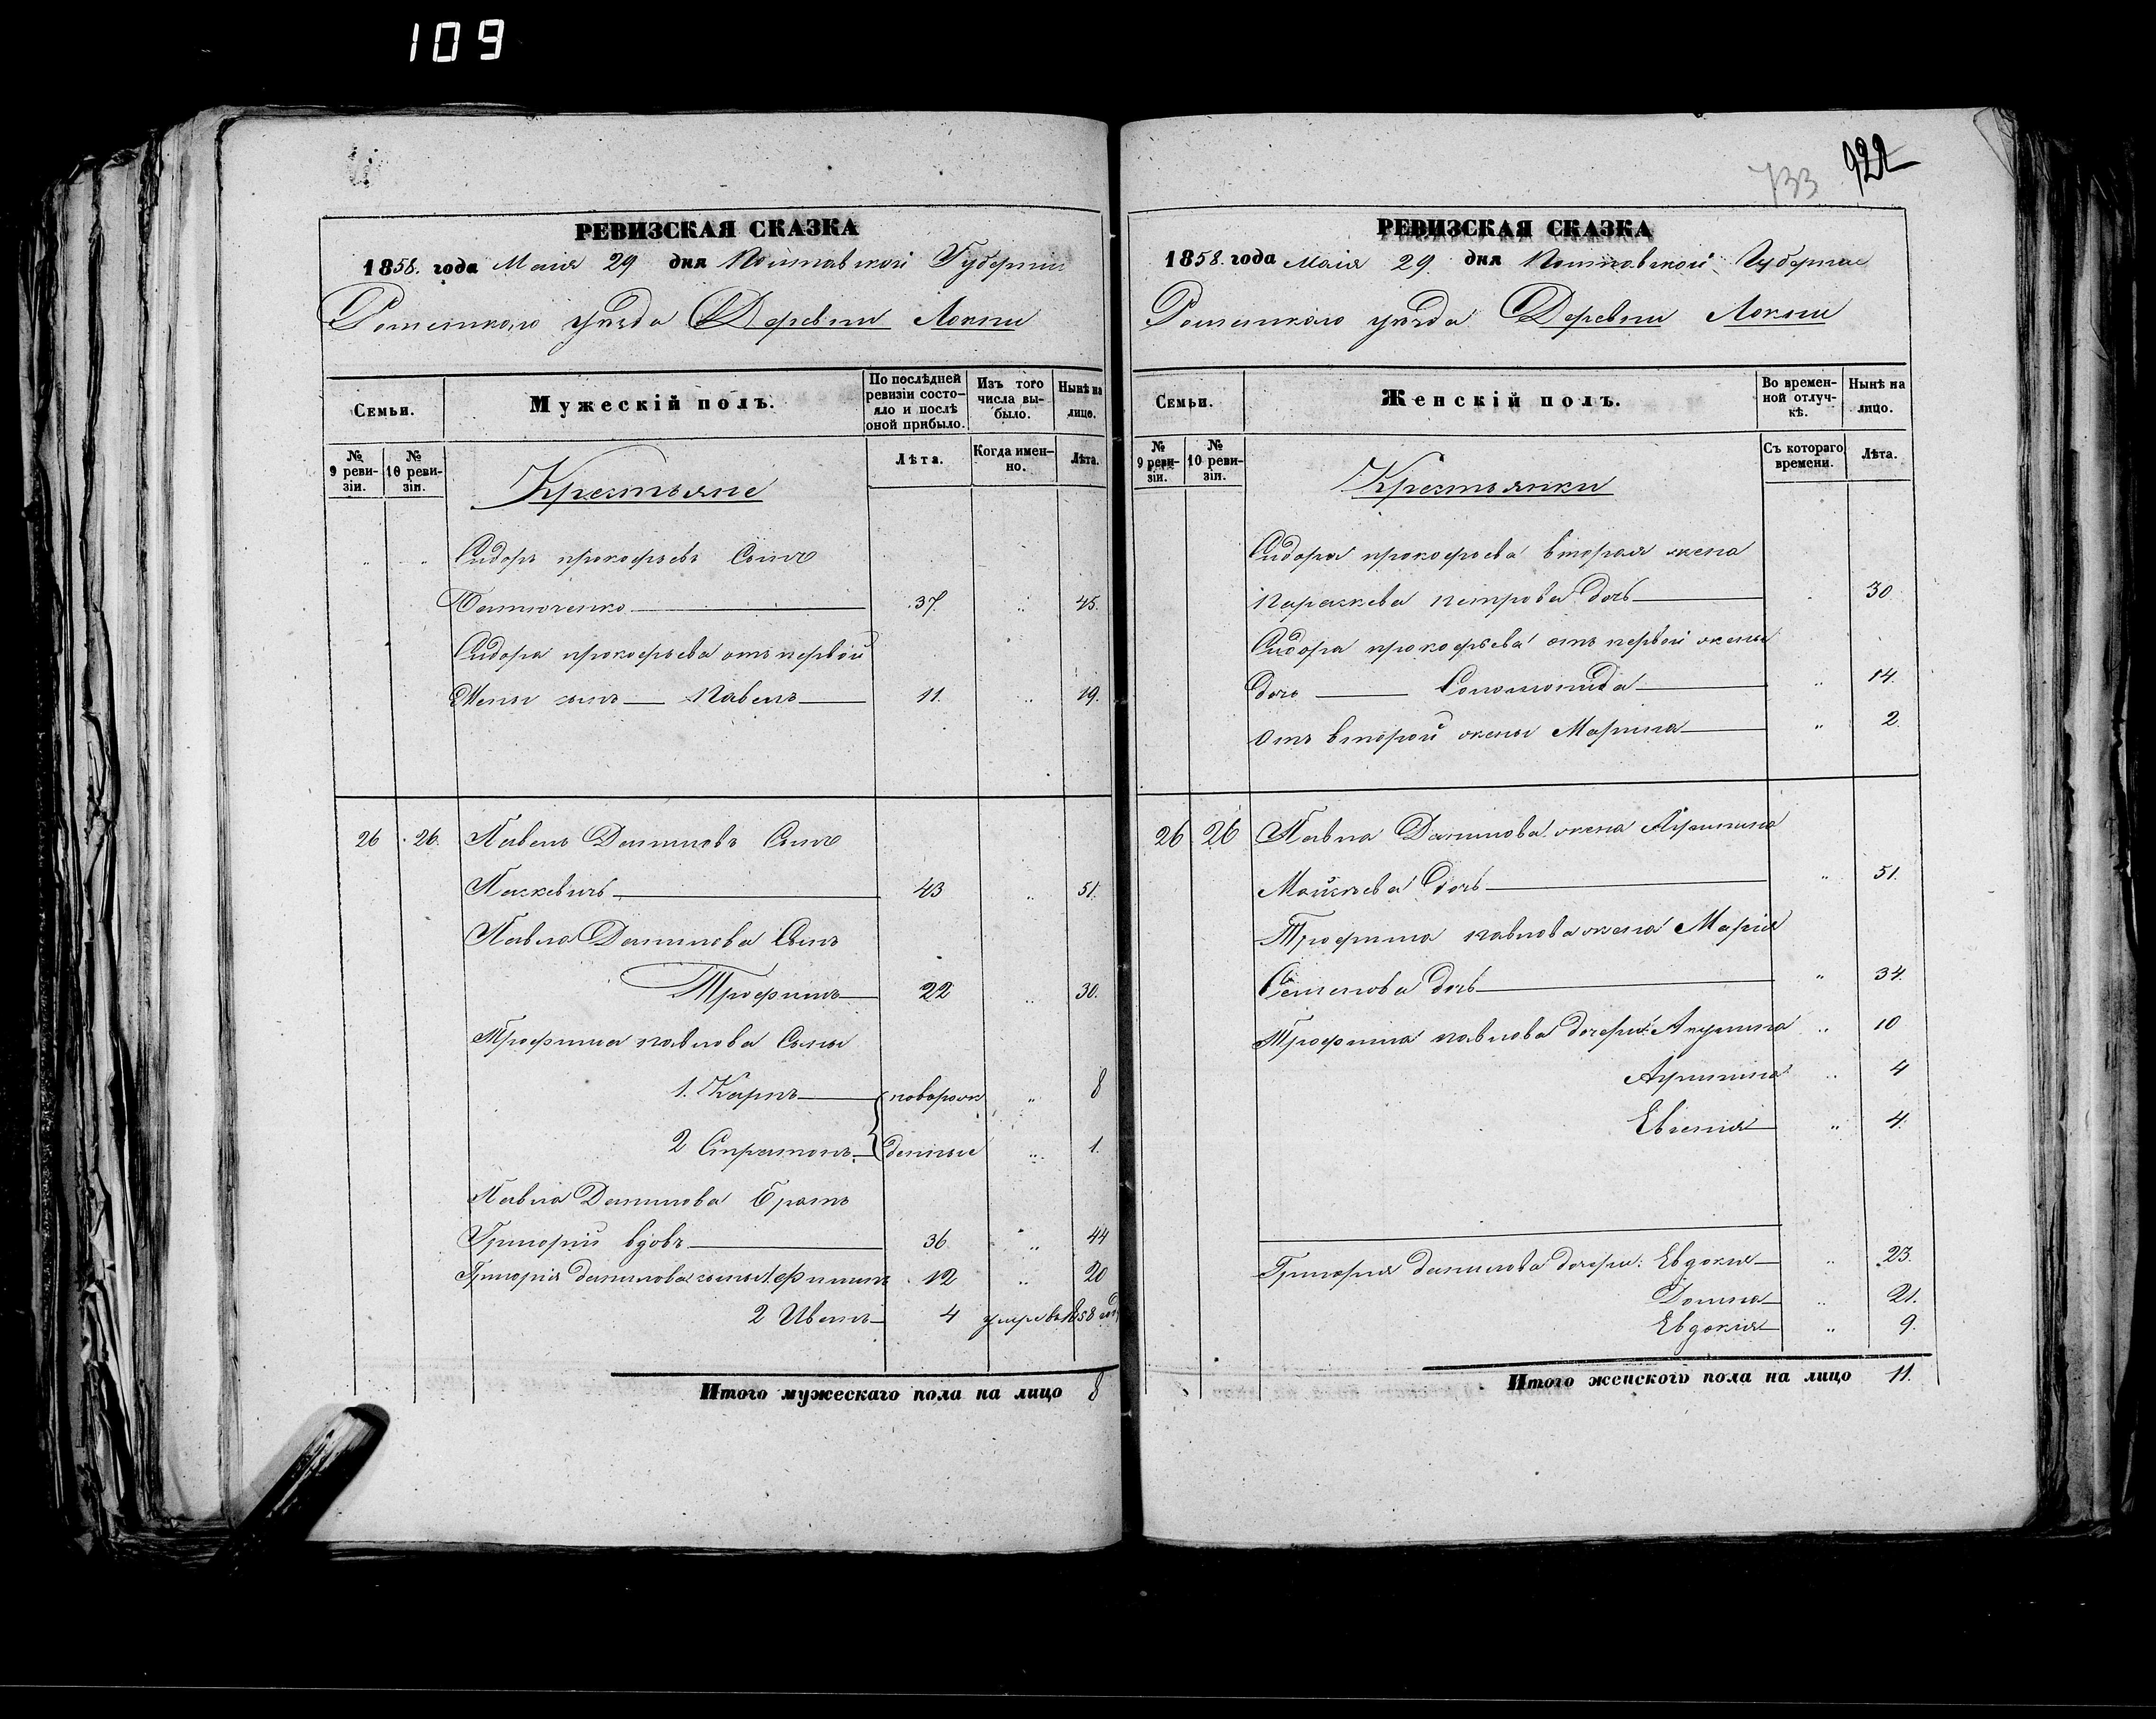 109
РЕВИЗСКАЯ СКАЗКА
1858. года Маія 29 дня Полтавской Губерніи
Роменскаго уѣзда Деревни Локни
Семьи.
Мужескій полъ.
По послѣдней ревизіи состо-
яло и послѣ
оной прибыло.
Изъ того
числа вы-
было.
Нынѣ на
лицо.
№
9 реви-
зіи.
№
10 реви-
зіи.
Крестьяне
Лѣта.
Когда имен-
но.
Лѣта.
Сидоръ прокофьевъ Сынъ
37. 45.
Сидора прокофьева отъ первой
Жены сынъ Павелъ 11. 19.
26 26. Павелъ Даниловъ Сынъ
Паскевичь 43 51.
Павла Данилова Сынъ
Трофимъ 22 30.
Трофима павлова Сыны
1. Карпъ новорож 8
2 Стратонъ денные 1.
Павла Данилова Братъ
Григорій вдовъ 36 44
Григорія данилова сыны 12 20
2 Иванъ 4 умре въ 1858 году
Итого мужескаго пола на лицо 8
733 922
РЕВИЗСКАЯ СКАЗКА
1858. года Маія 29. дня Полтавской Губерніи
Роменскаго уѣзда Деревни Локни
Семьи.
Женскій полъ.
Во времен-
ной отлуч-
кѣ.
Нынѣ на
лицо.
№
9 реви-
зіи.
№
10 реви-
зіи.
Крестьянки
Съ котораго
времени.
Лѣта.
Сидора прокофьева вторая жена
Параскева петрова дочь 30
Сидора прокофьева отъ первой жены
дочь Соломонида 14.
Отъ второй жены Марина 2.
26 26 Павла Данилова жена
Мойсѣева дочь 51.
Трофима павлова жена Марія
Семенова дочь 34.
Трофима павлова дочери: Акулина 10
4
Евгенія 4.
Григорія данилова дочери: Евдокія 23.
Домна 21.
Евдокія 9.
Итого женскаго пола на лицо 11.